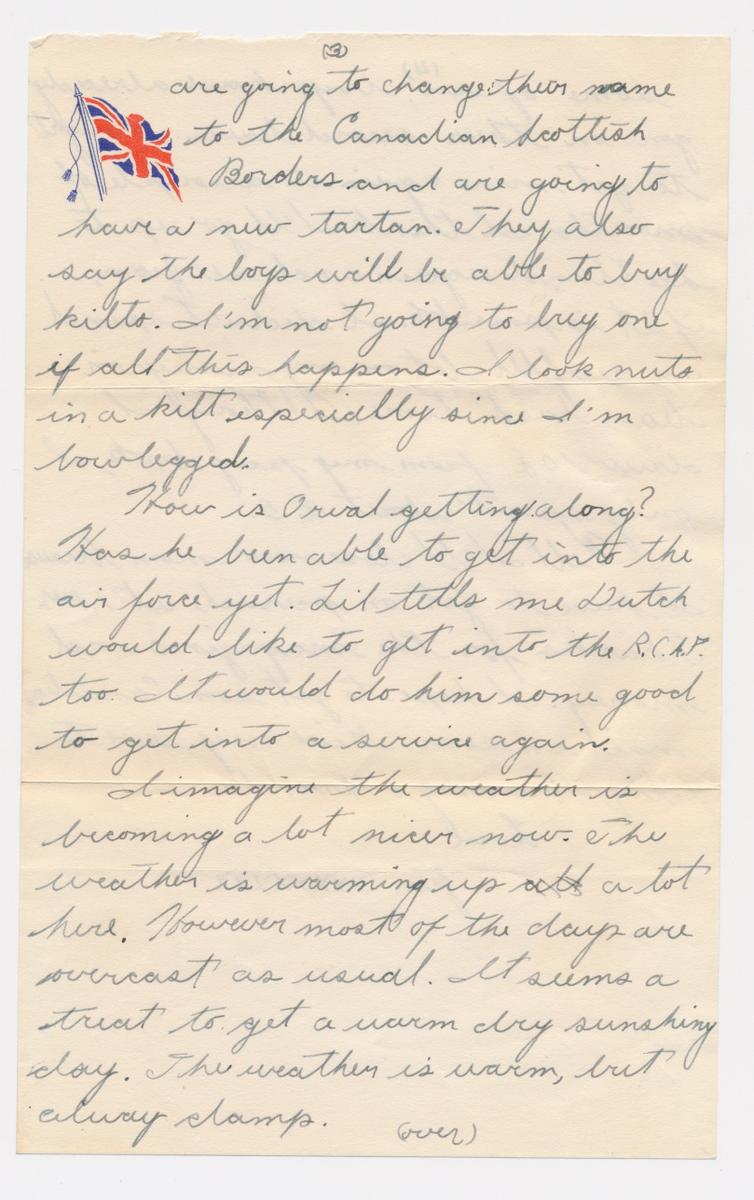 (3)
are going to change their name
to the Canadian Scottish
Borders and are going to
have a new tartan. They also
say the boys will be able to buy
kilts. I'm not going to buy one
if all this happens. I look nuts
in a kilt especially since I'm
bowlegged.
How is Orval getting along?
Has he been able to get into the
air force yet. Lil tells me Dutch
would like to get into the R.C.A.F.
too. It would do him some good
to get into a service again.
I imagine the weather is
becoming a lot nicer now. The
weather is warming up all a lot
here. However most of the days are
overcast as usual. It seems a
treat to get a warm dry sunshiny
day. The weather is warm, but
alway damp.
(over)